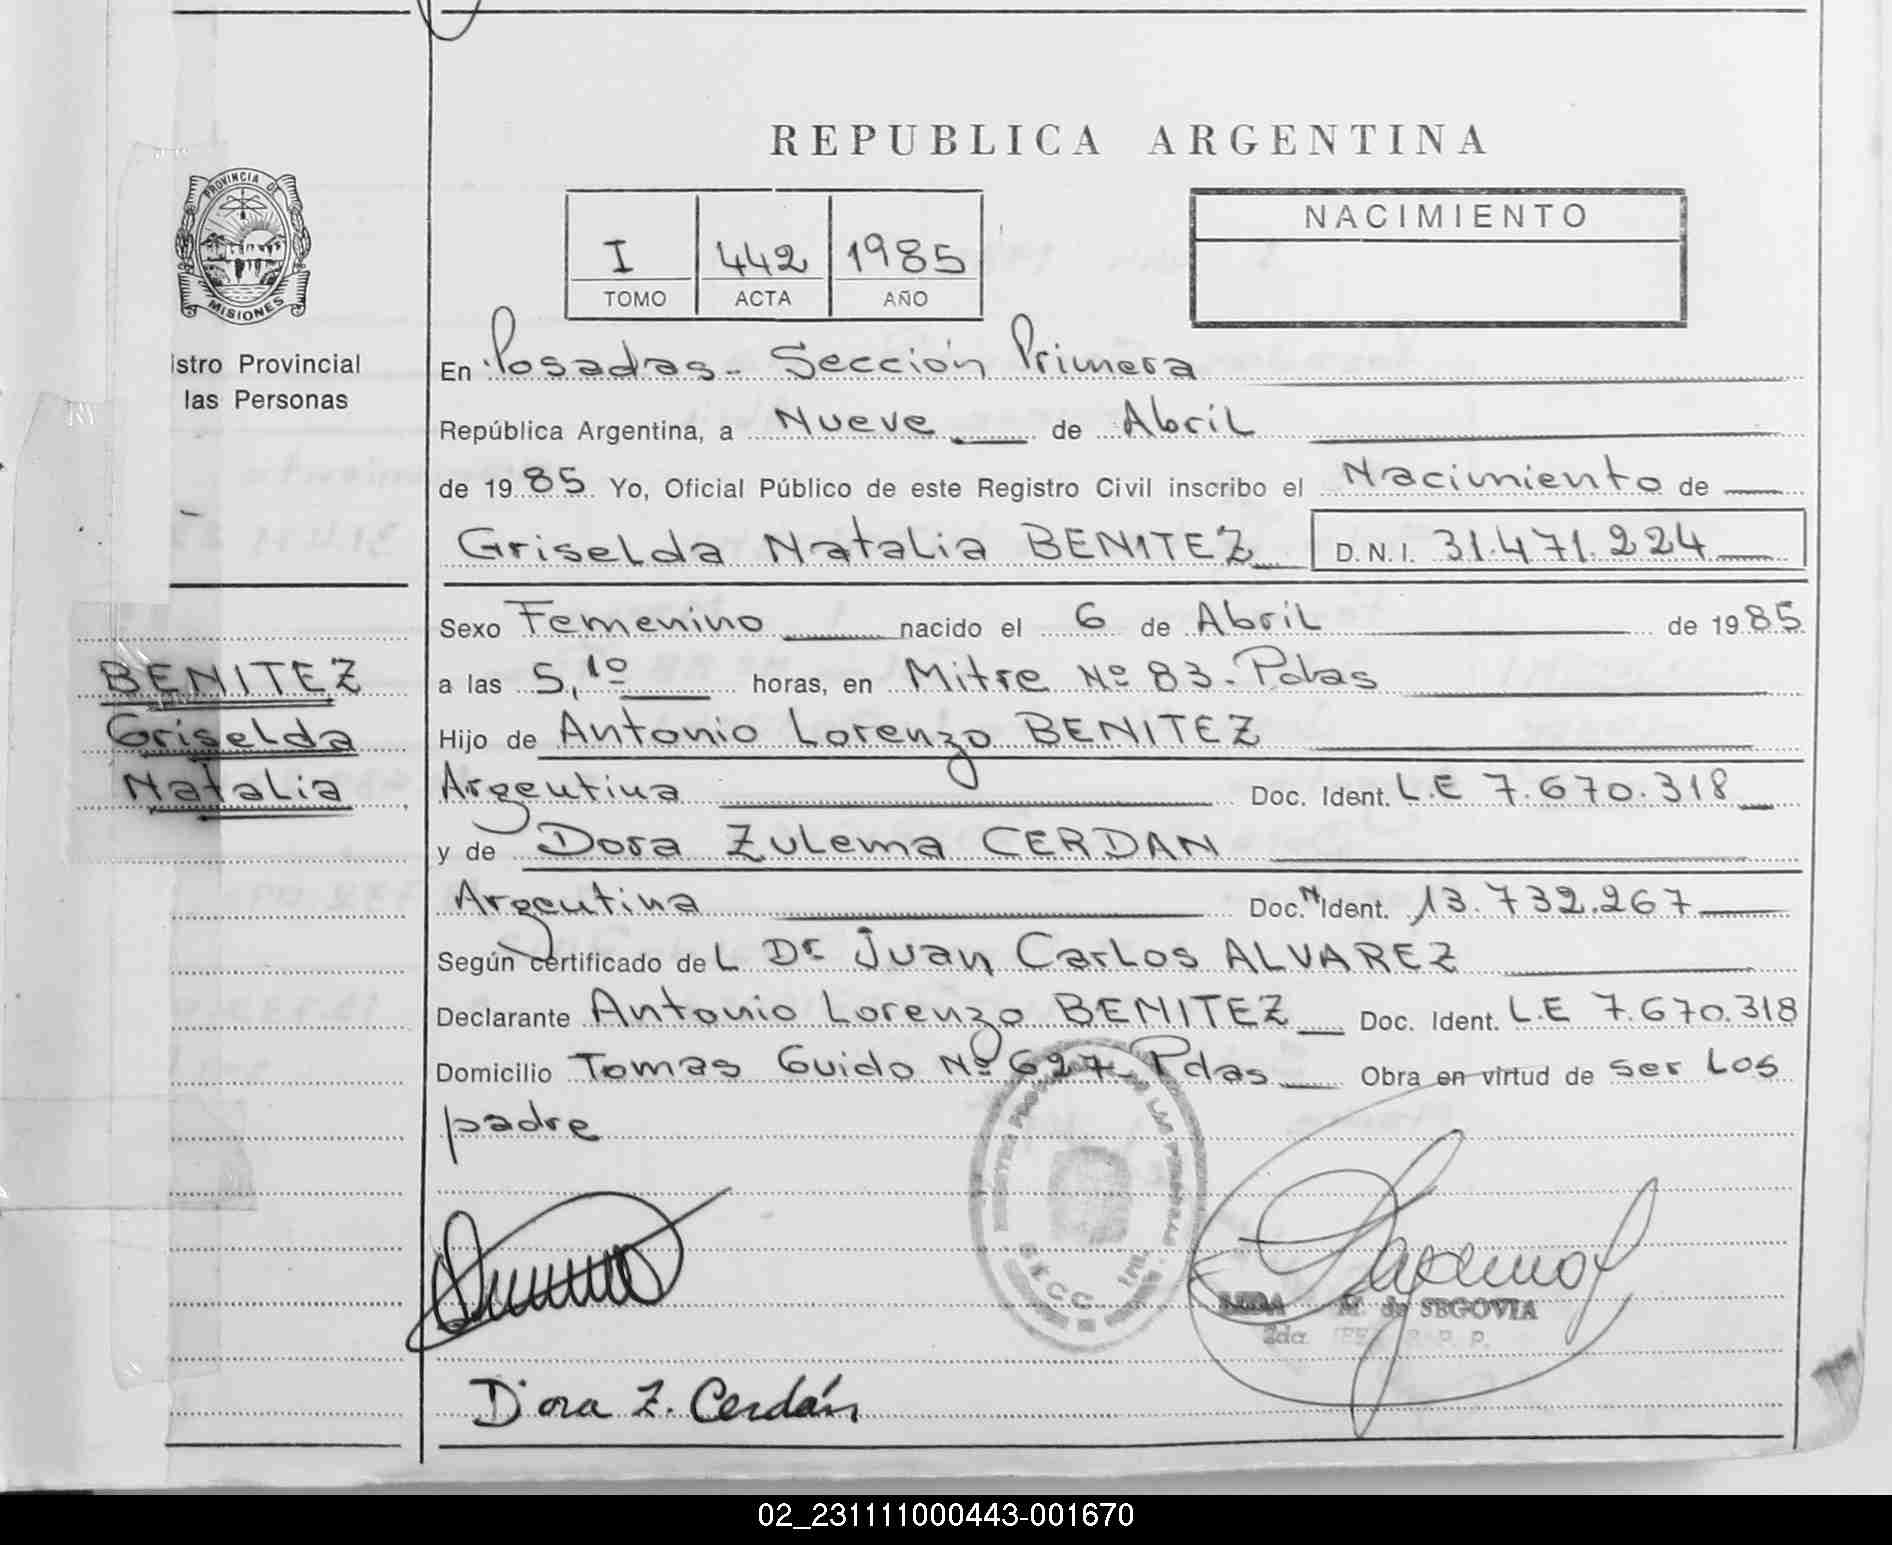 REPUBLICA ARGENTINA
PROVINCIA DE
MISIONES
I 442 1985
TOMO ACTA AÑO
NACIMIENTO
istro Provincial
las Personas
En Posadas - Sección Primera
República Argentina, a Nueve de Abril
de 1985 Yo, Oficial Público de este Registro Civil inscribo el Nacimiento de
Griselda Natalia BENITEZ D.N.I. 31.471.224
Sexo Femenino nacido el 6 de Abril de 1985
BENITEZ
Griselda
Natalia
a las 5,10 horas, en Mitre Nº 83 - Pdas
Hijo de Antonio Lorenzo BENITEZ
Argentina Doc. Ident. L.E 7.670.318
y de Dora Zulema CERDAN
Argentina Doc. N Ident. 13.732.267
Según certificado deL Dr Juan Carlos ALVAREZ
Declarante Antonio Lorenzo BENITEZ Doc. Ident. L.E 7.670.318
Domicilio Tomas Guido Nº 627 - Pdas Obra en virtud de ser los
padre
M. de SEGOVIA
2da.
Dora Z. Cerdán
02_231111000443-001670